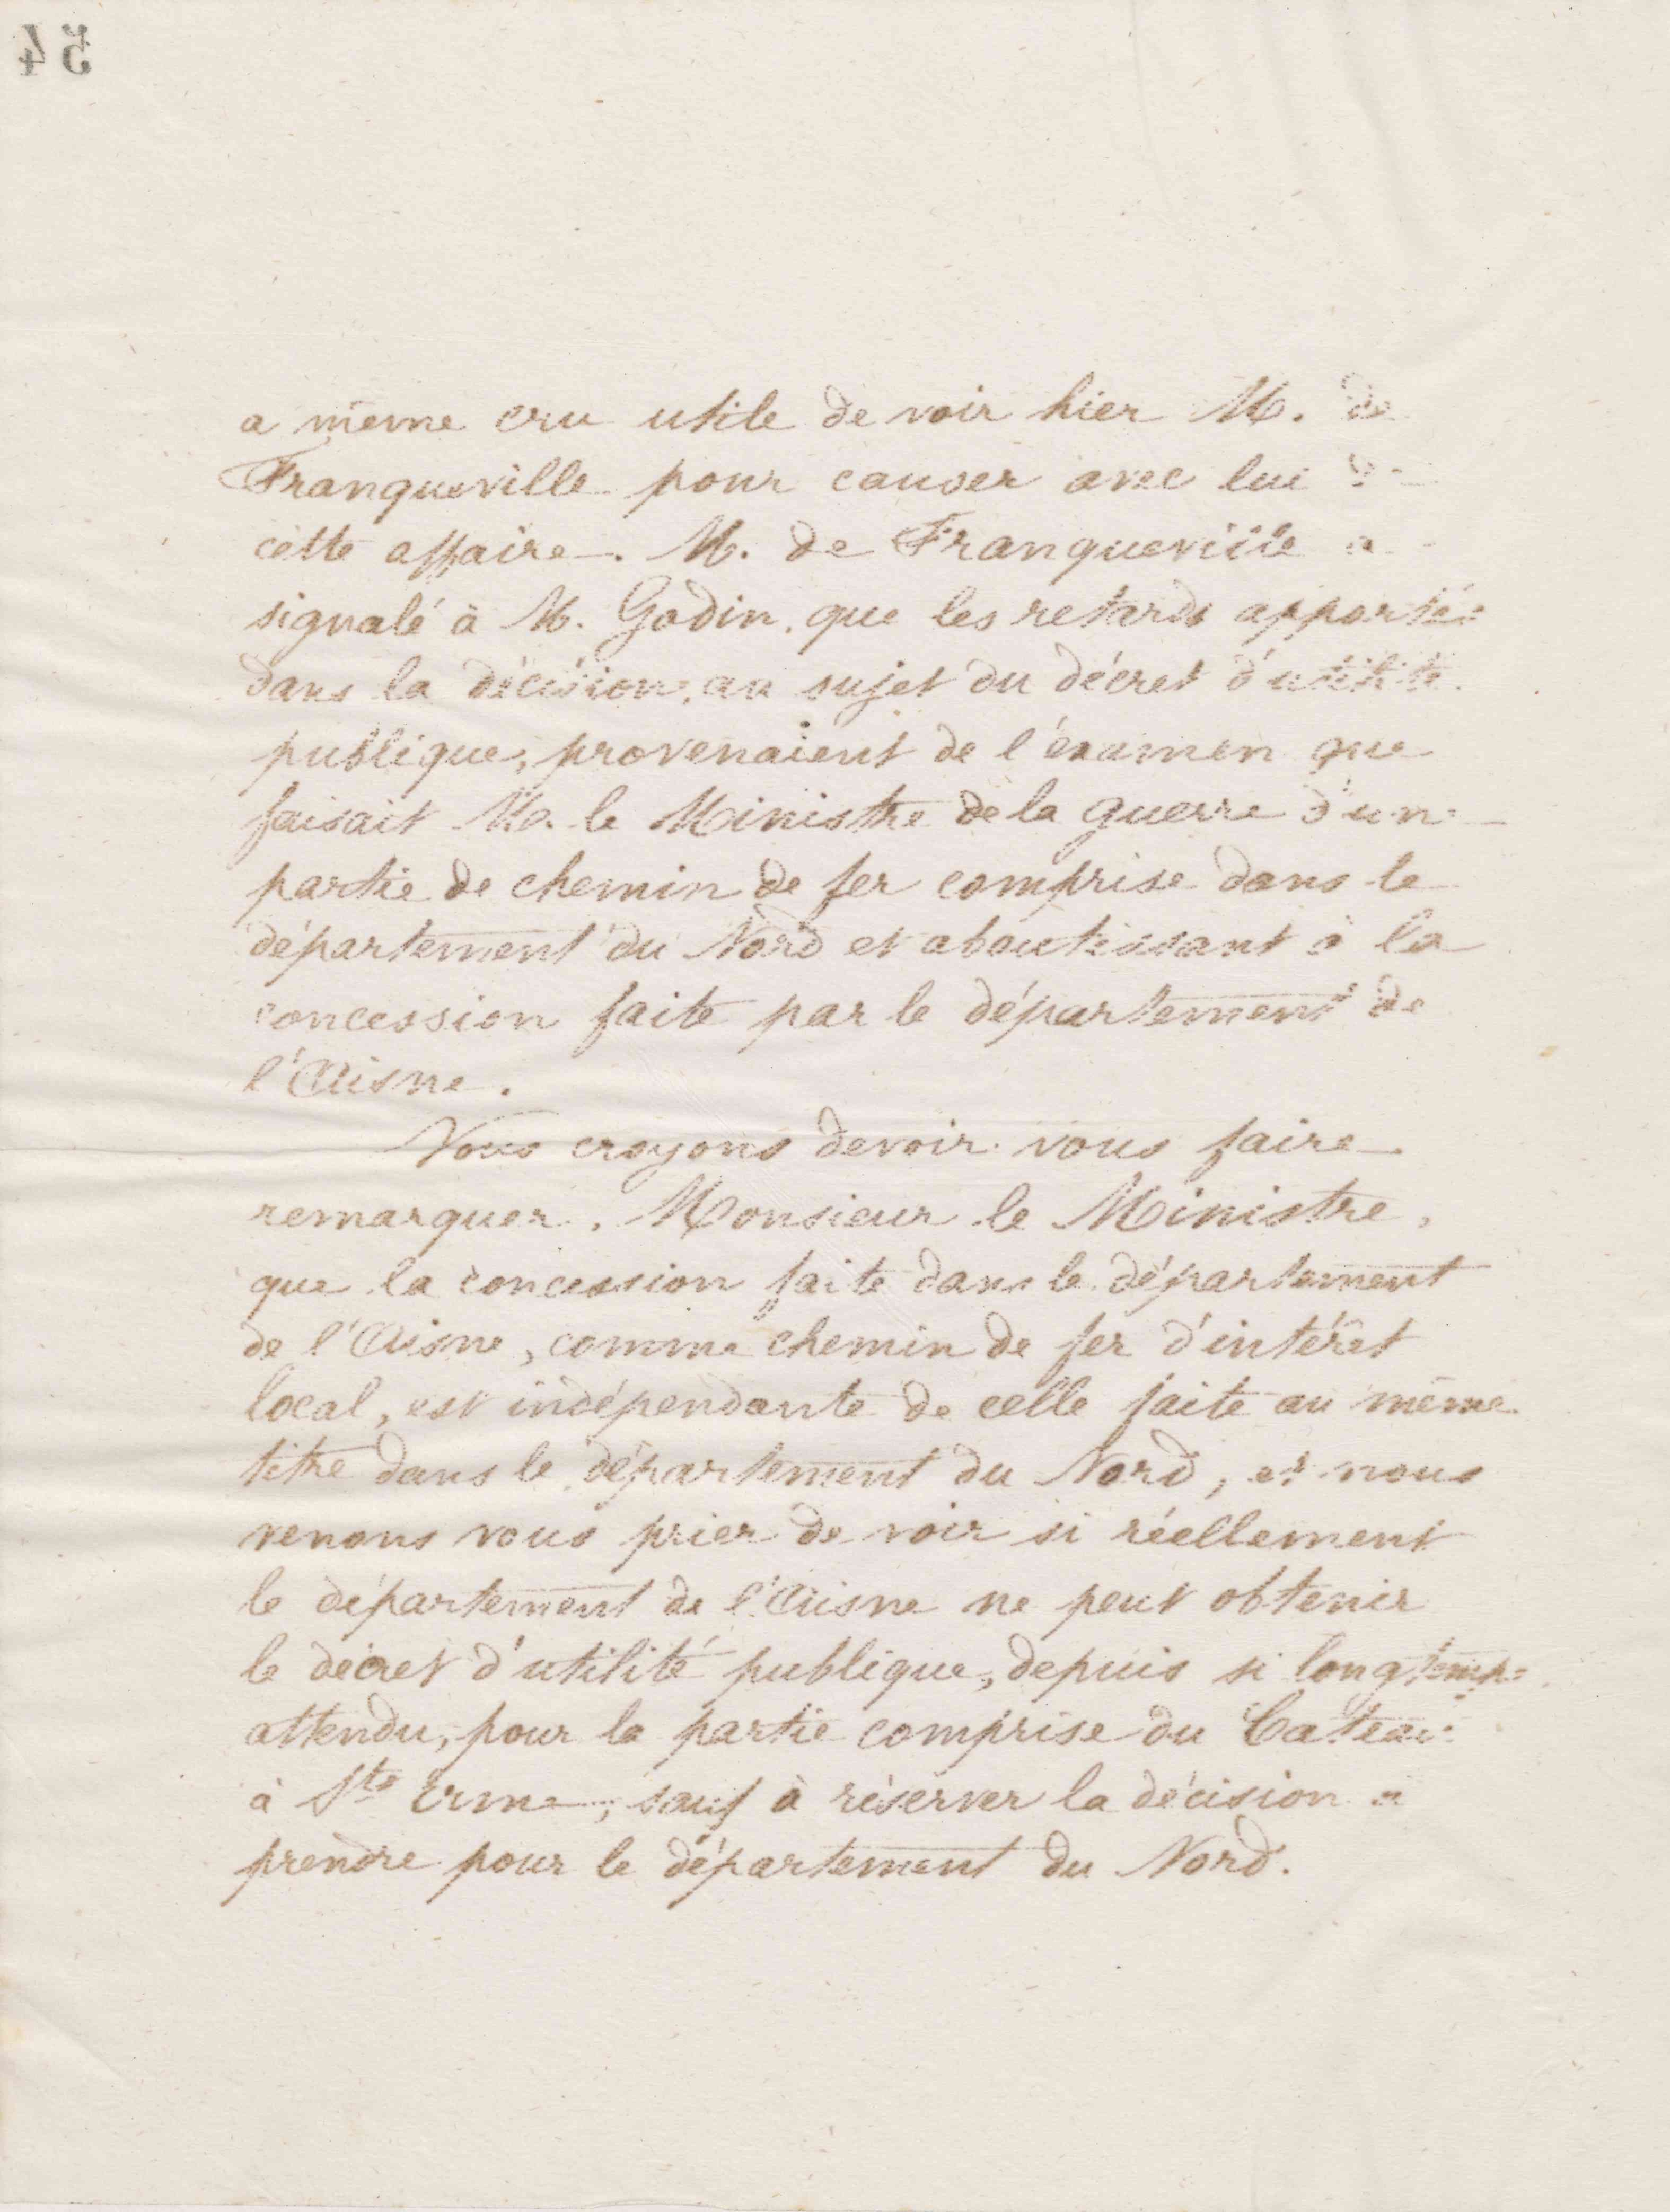 54
a même cru utile de voir hier M. de
Franqueville pour causer avec lui
cette affaire. M. de Franqueville a
signalé à M. Godin, que les retards apportés
dans la décision, au sujet du décret d'utilité
publique, provenaient de l'examen que
faisait M. le Ministre de la guerre d'une
partie de chemin de fer comprise dans le
département du Nord et aboutissant à la
concession faite par le département de
l'Aisne.
Nous croyons devoir vous faire
remarquer, Monsieur le Ministre,
que la concession faite dans le département
de l'Aisne, comme chemin de fer d'intérêt
local, est indépendante de celle faite au même
titre dans le département du Nord, et nous
venons vous prier de voir si réellement
le département de l'Aisne ne peut obtenir
le décret d'utilité publique, depuis si longtemps
attendu, pour la partie comprise du Cateau
à Ste Erme, sauf à réserver la décision à
prendre pour le département du Nord.